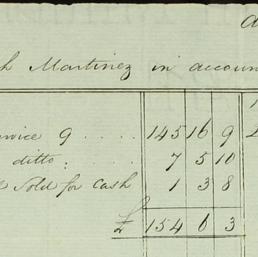 h Martinez in accoun
rvice 9 .... 145 16 9
ditto . . 7 5 10
Sold for Cash 1 3 8
£ 154 6 3